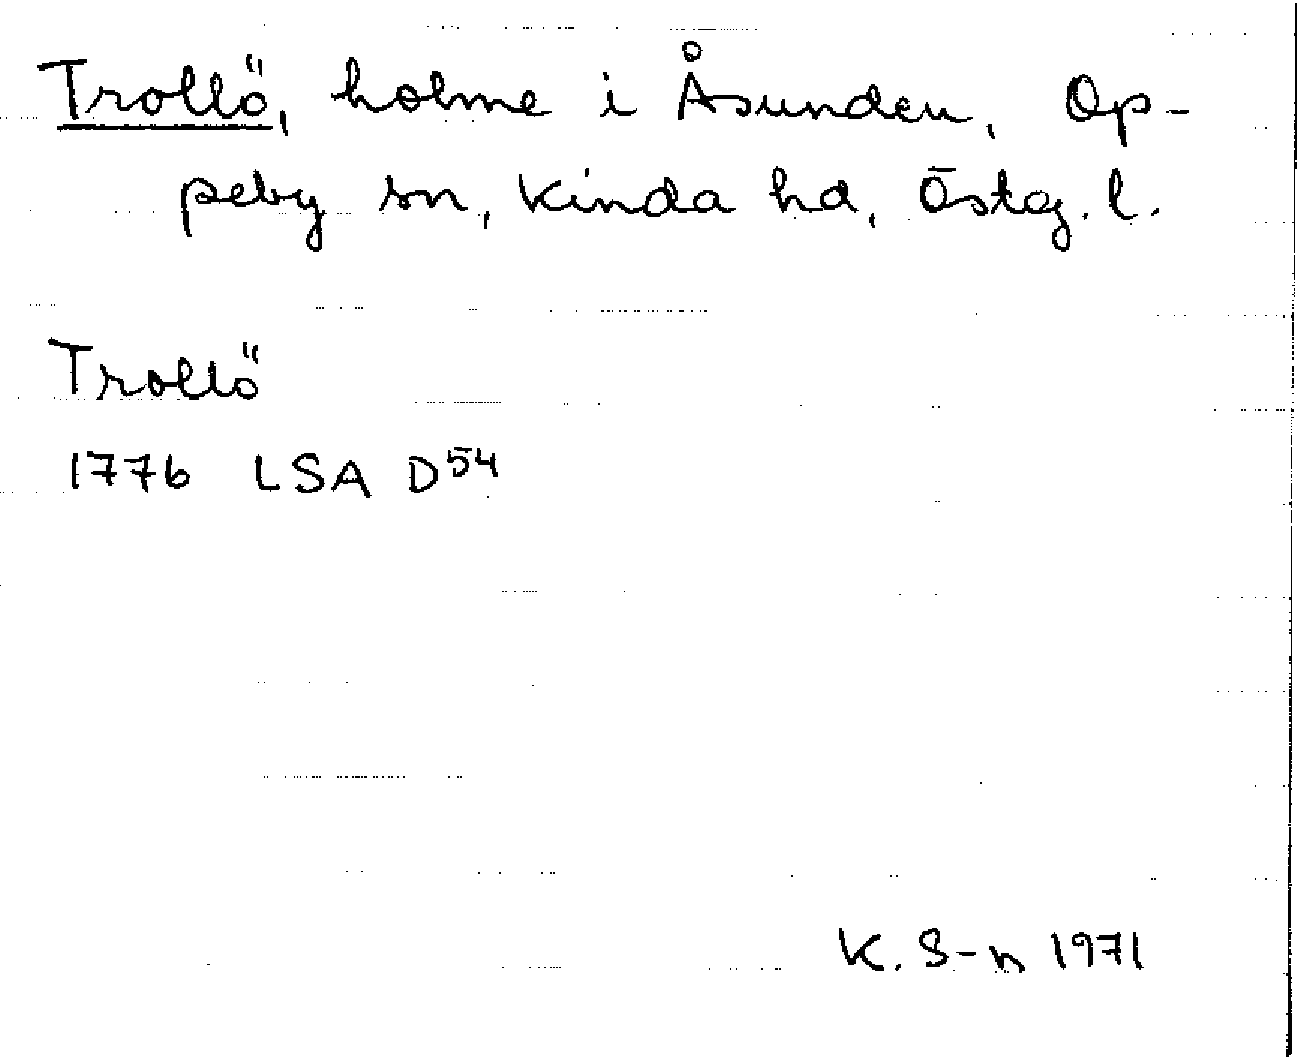 Trollö, holme i Åsunden, Op-
peby sn, Kinda hd, Östg. l.
Trollö
1776 LSA D54
K. S-n 1971